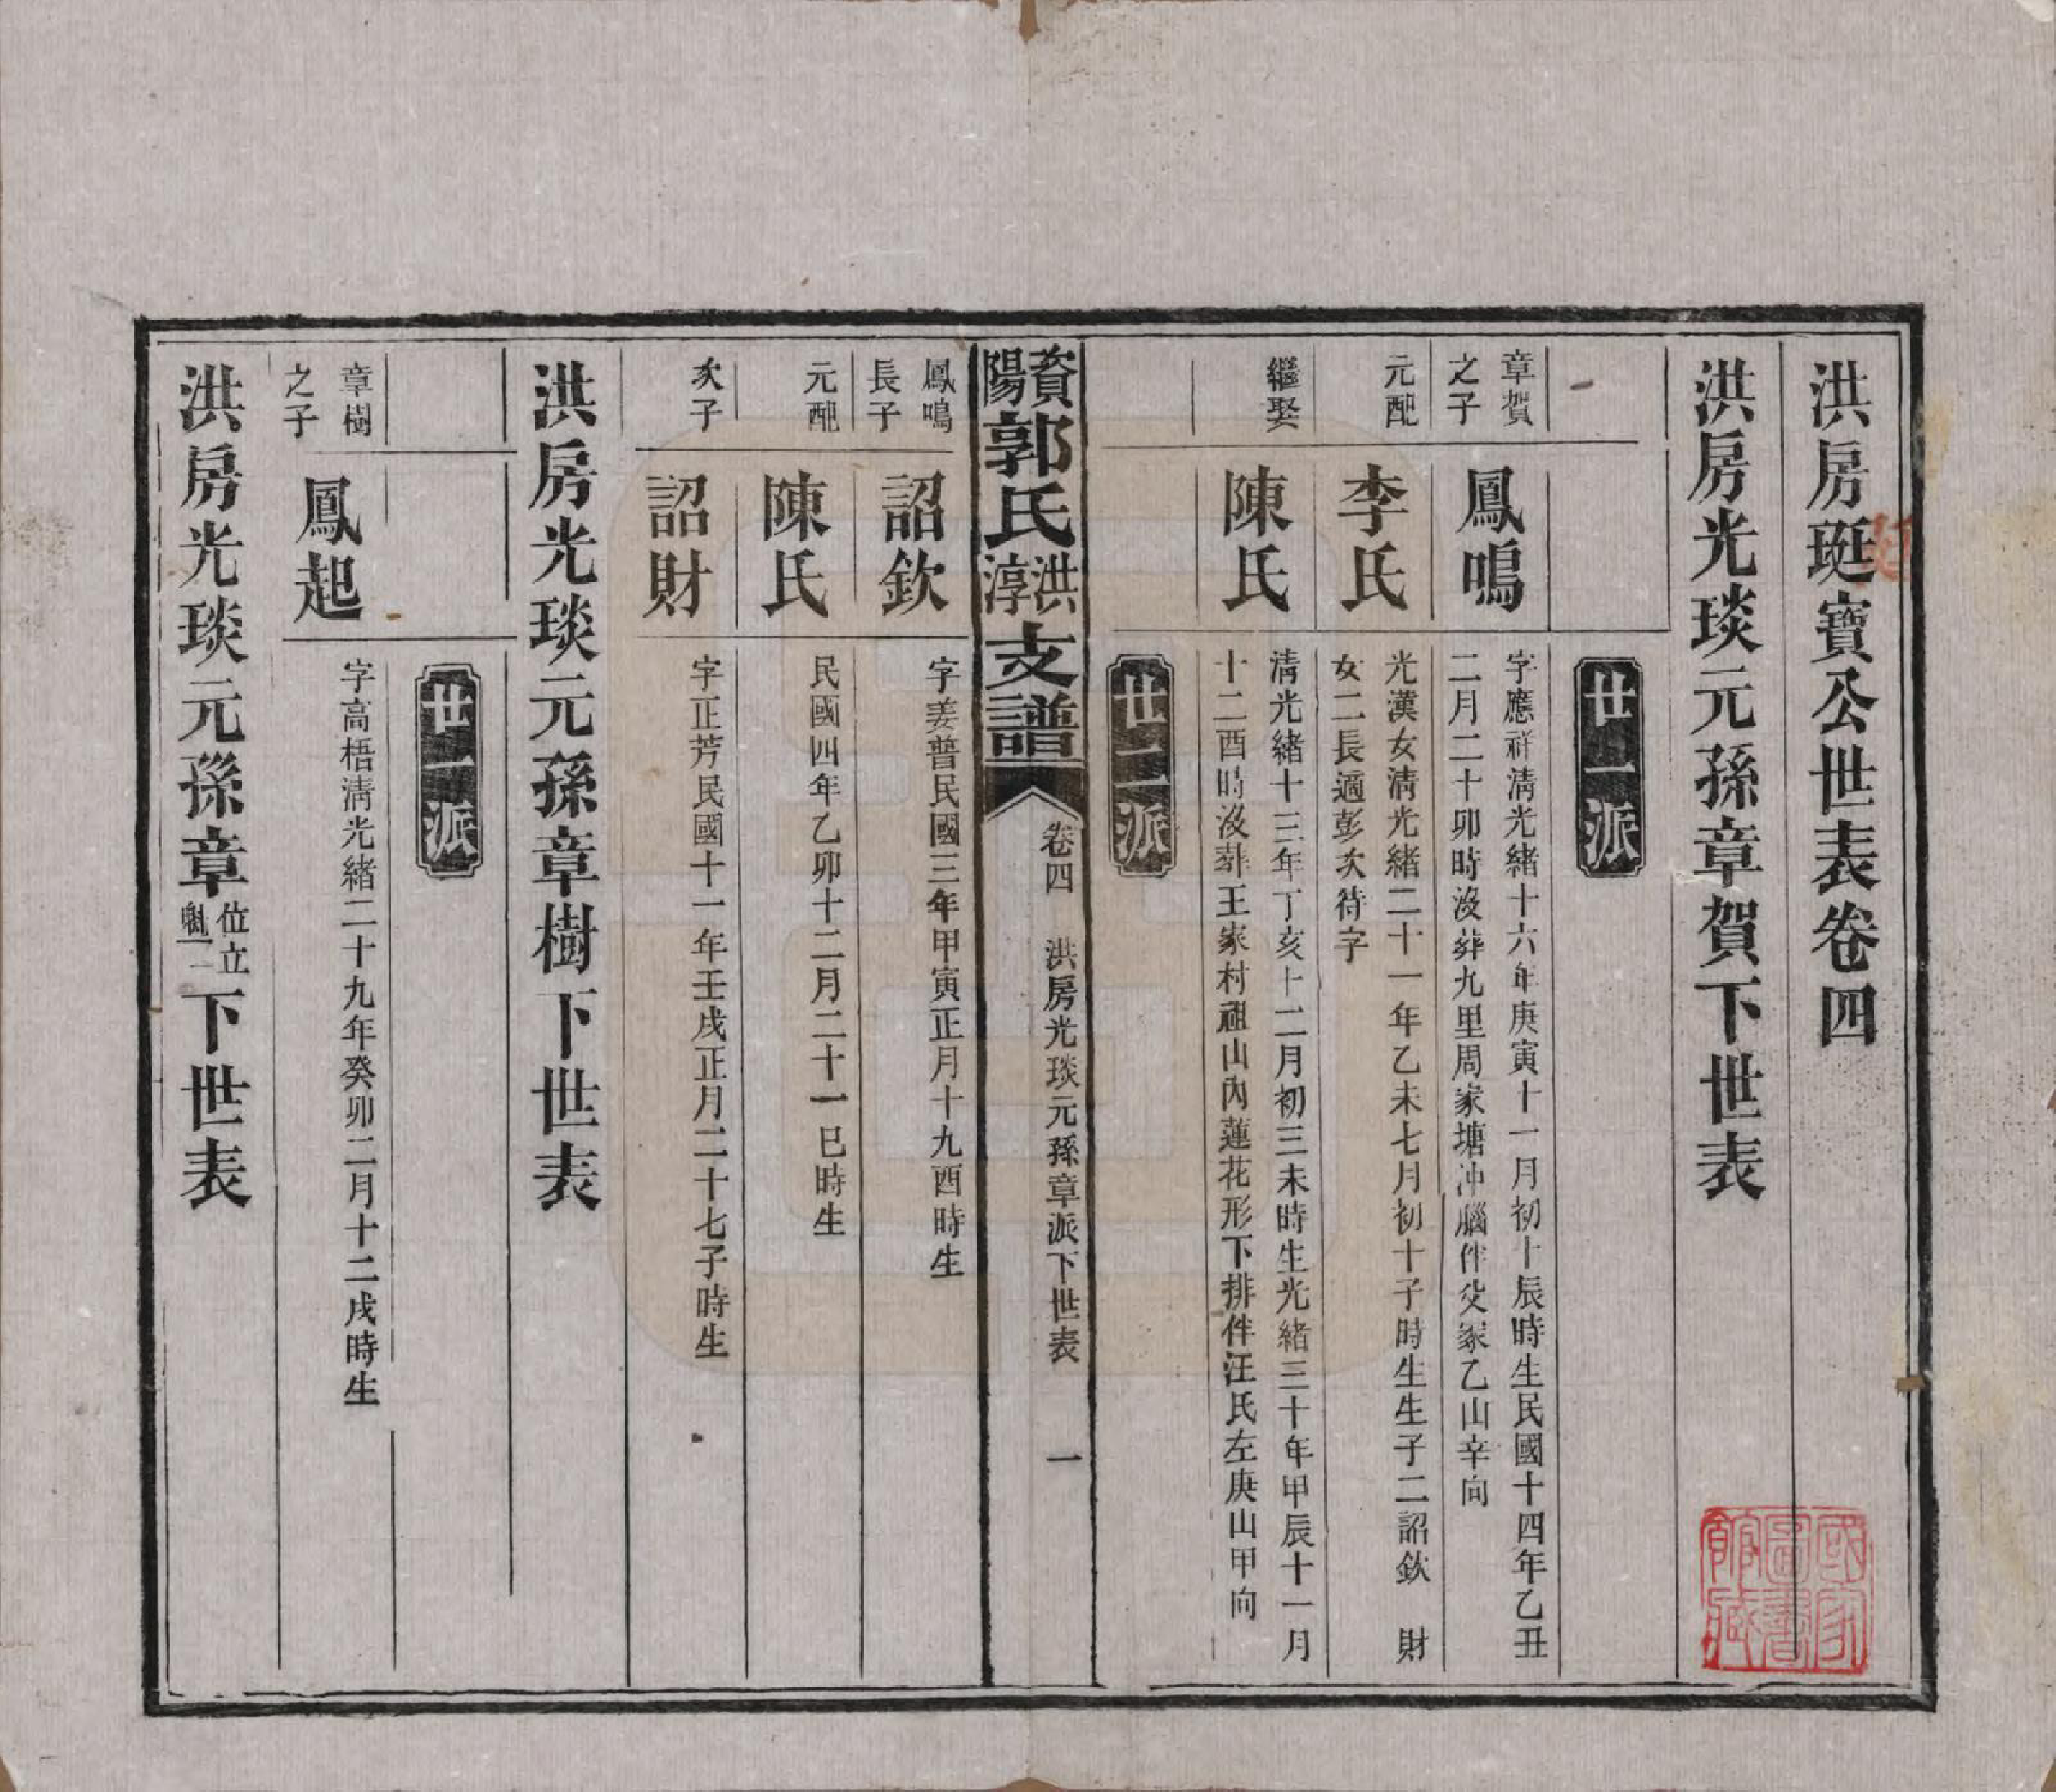 洪房珽寶公世表卷四
洪房光琰元孫章賀下世表
廿一派
章賀之子
鳳鳴
字應祥淸光緒十六年庚寅十一月初十辰時生民國十四年乙丑
二月二十卯時沒葬九里周家塘冲腦伴父冢乙山辛向
元配
李氏
光漢女淸光緒二十一年乙未七月初十子時生生子二詔欽 財
女二長適彭次待字
繼娶
陳氏
淸光緒十三年丁亥十二月初三未時生光緒三十年甲辰十一月
十二酉時沒葬王家村祖山內蓮花形下排伴汪氏左庚山甲向
廿二派
資陽郭氏洪淳支譜
卷四 洪房光琰元孫章派下世表 一
鳳鳴長子
詔欽
字姜普民國三年甲寅正月十九酉時生
元配
陳氏
民國四年乙卯十二月二十一巳時生
次子
詔財
字正芳民國十一年壬戌正月二十七子時生
洪房光琰元孫章樹下世表
廿一派
章樹之子
鳳起
字高梧淸光緒二十九年癸卯二月十二戌時生
洪房光琰元孫章位立魁一下世表
國家圖書館藏